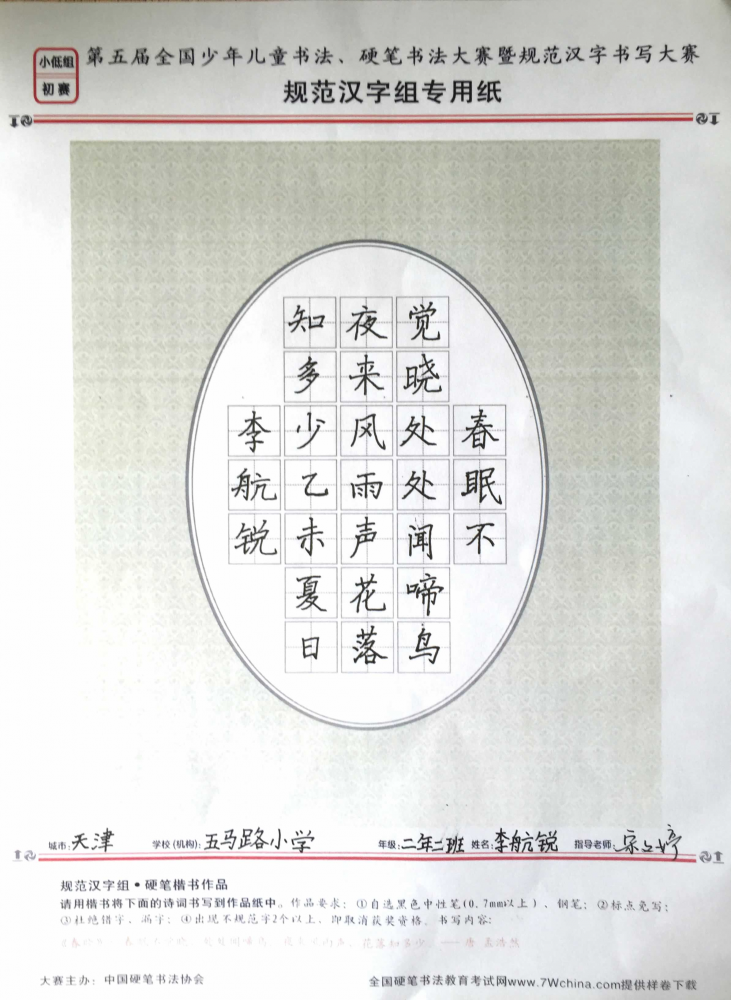 小低组
初赛
第五届全国少年儿童书法、硬笔书法大赛暨规范汉字书写大赛
规范汉字组专用纸
春眠不
觉晓处处闻啼鸟
夜来风雨声花落
知多少乙未夏日
李航锐
城市:天津 学校(机构):五马路小学 年级:二年二班 姓名:李航锐 指导老师:
规范汉字组·硬笔楷书作品
请用楷书将下面的诗词书写到作品纸中。作品要求:①自选黑色中性笔(0.7mm以上)、钢笔;②标点免写;
③杜绝错字、漏字;④出现不规范字2个以上,即取消获奖资格。书写内容:
花落知多少。——唐 孟浩然
大赛主办:中国硬笔书法协会 全国硬笔书法教育考试网www.7Wchina.com提供样卷下载